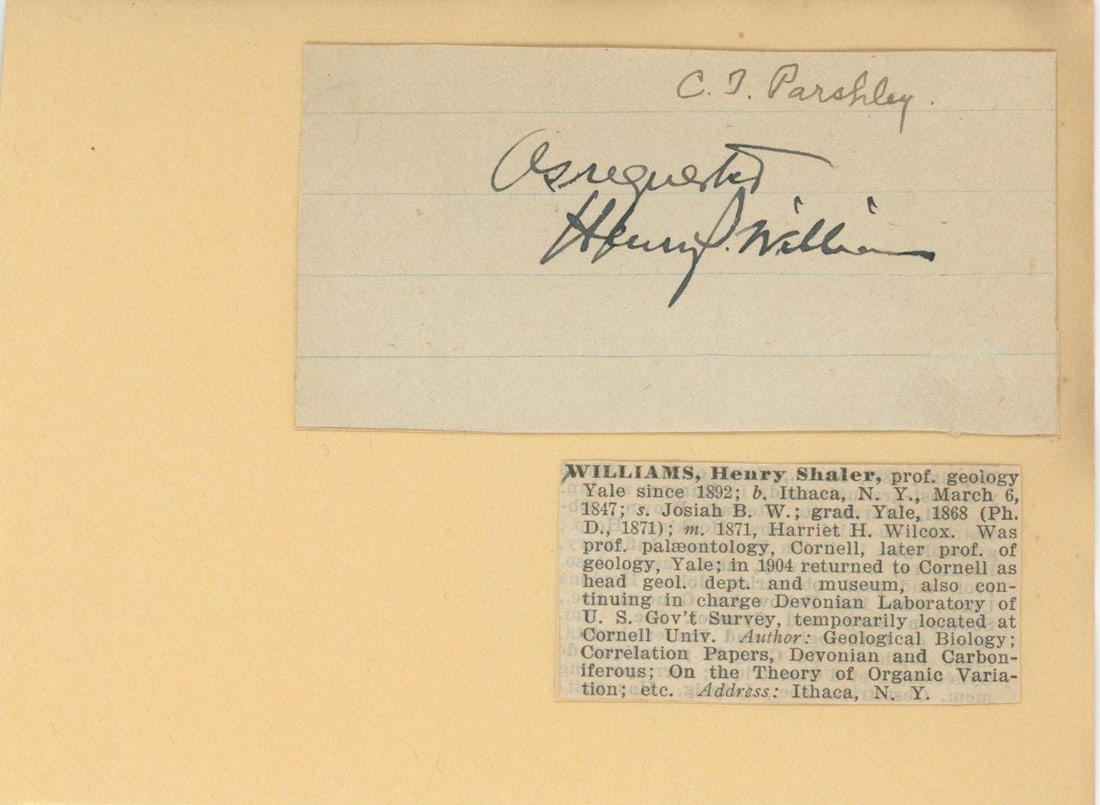 C. T. Parshley.
As requested
Henry S. Williams
WILLIAMS, Henry Shaler, prof. geology
Yale since 1892; b. Ithaca, N. Y., March 6,
1847; s. Josiah B. W.; grad. Yale, 1868 (Ph.
D., 1871); m. 1871, Harriet H. Wilcox. Was
prof. palæontology, Cornell, later prof. of
geology, Yale; in 1904 returned to Cornell as
head geol. dept. and museum, also con-
tinuing in charge Devonian Laboratory of
U. S. Gov't Survey, temporarily located at
Cornell Univ. Author: Geological Biology;
Correlation Papers, Devonian and Carbon-
iferous; On the Theory of Organic Varia-
tion; etc. Address: Ithaca, N. Y.